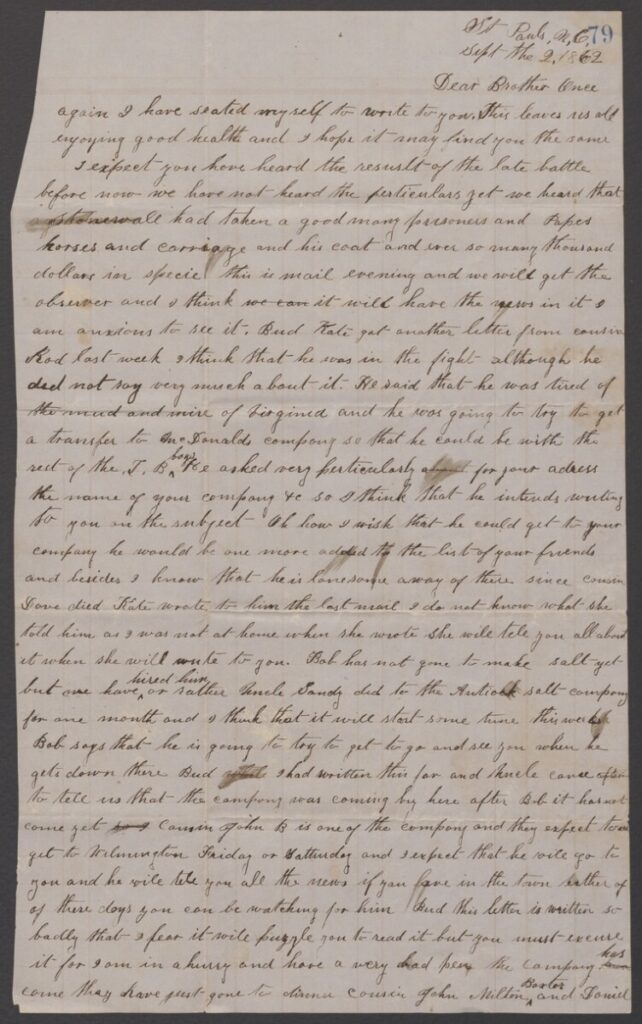 St Pauls, N, C, 79
Sept the 2, 1862
Dear Brother Once
again I have seated myself to write to you. This leaves us all
enjoying good health and I hope it may find you the same
I expect you have heard the resuslt of the late battle
before now we have not heard the perticulars yet we heard that
stonewall had taken a good many prisoners and Popes
horses and carriage and his coat and ever so many thousand
dollars in specie this is mail evening and we will get the
observer and I think we can it will have the news in it I
am anxious to see it. Bud Kate got another letter from cousin
Rod last week I think that he was in the fight although he
did not say very much about it. He said that he was tired of
the mud and mire of Virginia and he was going to try to get
a transfer to McDonalds company so that he could be with the
rest of the J. B. boys He asked very perticularly for your adress
the name of your company &c so I think that he intends writing
to you on the subject Oh how I wish that he could get to your
company he would be one more added to the list of your friends
and besides I know that he is lonesome away of there since cousin
Dave died Kate wrote to him the last mail I do not know what she
told him as I was not at home when she wrote she will tell you all about
it when she will write to you. Bob has not gone to make salt yet
but we have hired him, or rather Uncle Sandy did to the Antioch salt company
for one month and I think that it will start some time this week
Bob says that he is going to try to get to go and see you when he
gets down there Bud I had written this far and Uncle came
to tell us that the company was coming by here after Bob it has not
come yet so I Cousin John B is one of the company and they expect to
get to Wilmington Friday or Satturday and I expect that he will go to
you and he will tell you all the news if you are in the town either of
of these days you can be watching for him Bud this letter is written so
badly that I fear it will puzzle you to read it but you must excuse
it for I am in a hurry and have a very bad pen the company has
come they have just gone to dinner cousin John Milton Baxter and Daniel